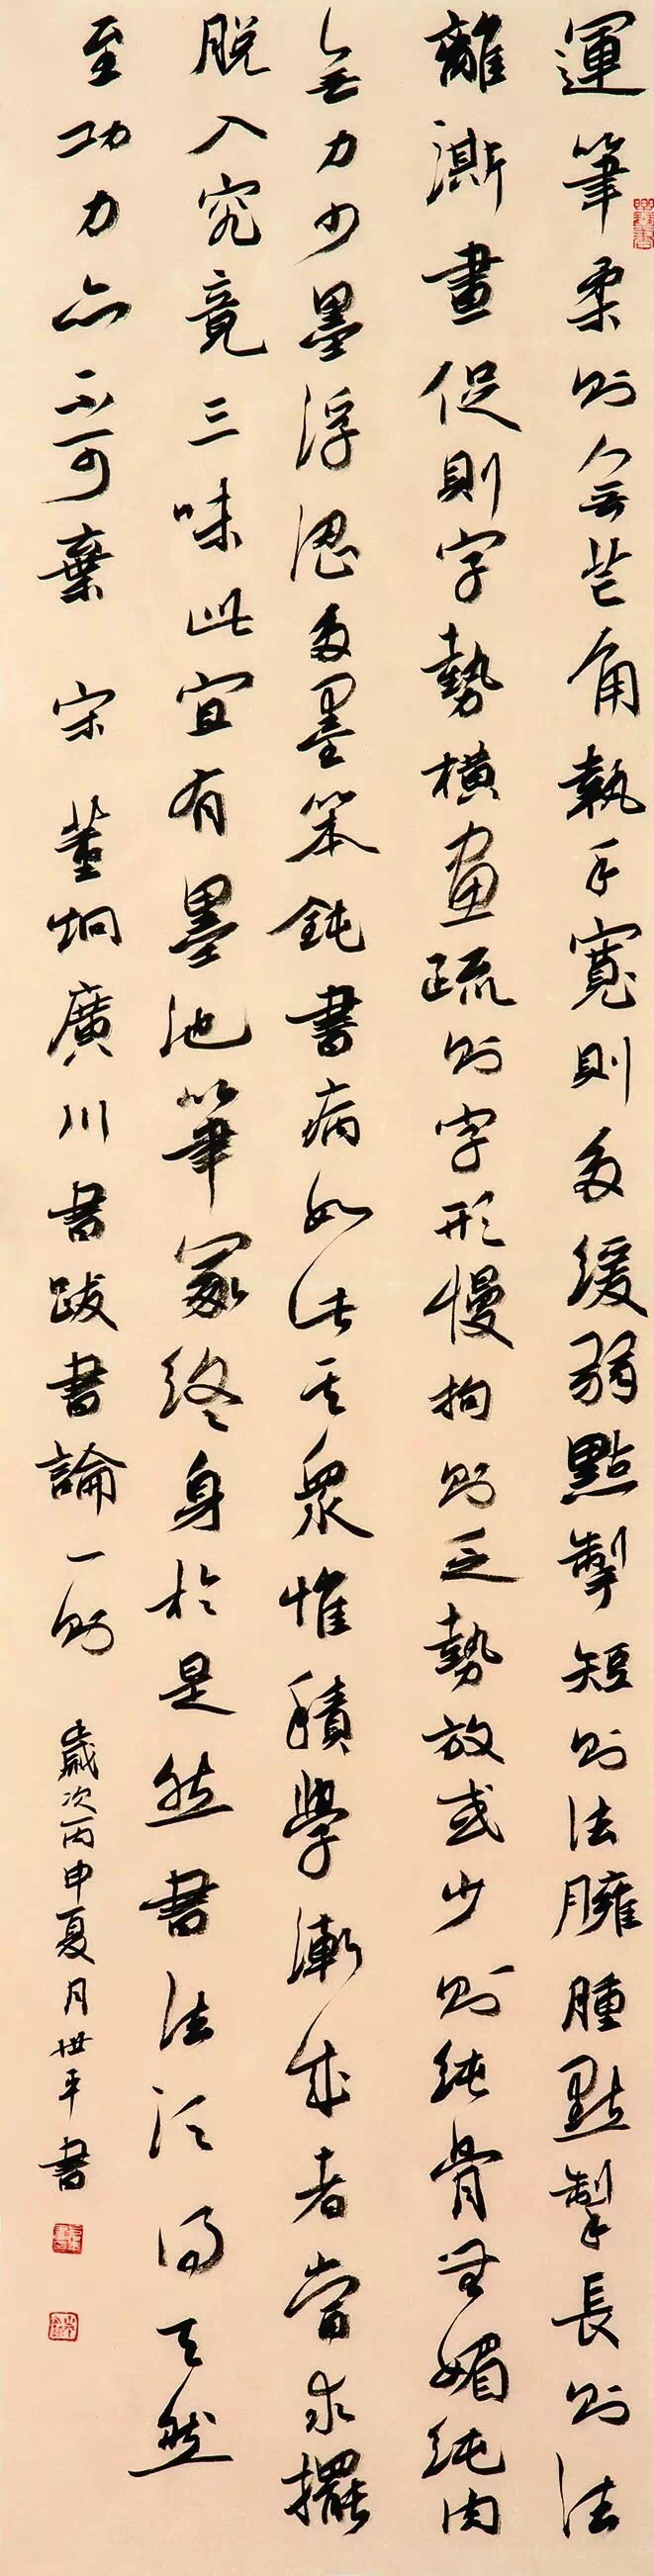 運筆柔則無芒角執手寬則多緩弱點掣短則法臃腫點掣長則法
離澌畫促則字勢橫畫疏則字形慢拘則乏勢放或少則純骨無媚純肉
無力少墨浮澀多墨笨鈍書病如此其衆惟積學漸成者當求擺
脱入究竟三昧此宜有墨池筆冢終身於是然書法須得天然
至功力亦不可棄 宋 董炯廣川書跋書論一則
歲次丙申夏月世平書